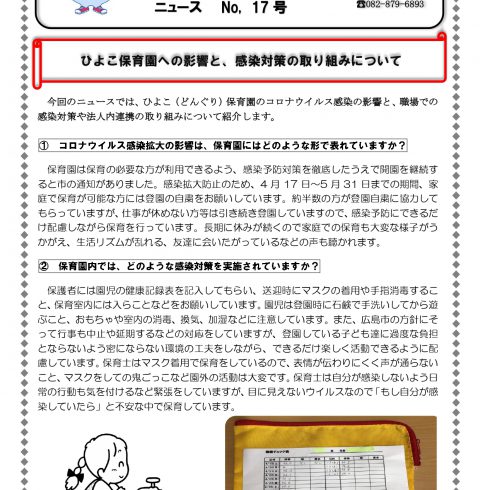 ニュース　No, 17 号
☎082-879-6893
ひよこ保育園への影響と、感染対策の取り組みについて
今回のニュースでは、ひよこ（どんぐり）保育園のコロナウイルス感染の影響と、職場での
感染対策や法人内連携の取り組みについて紹介します。
①　コロナウイルス感染拡大の影響は、保育園にはどのような形で表れていますか？
保育園は保育の必要な方が利用できるよう、感染予防対策を徹底したうえで開園を継続す
ると市の通知がありました。感染拡大防止のため、4 月 17 日～5 月 31 日までの期間、家
庭で保育が可能な方には登園の自粛をお願いしています。約半数の方が登園自粛に協力して
もらっていますが、仕事が休めない方等は引き続き登園していますので、感染予防にできるだ
け配慮しながら保育を行っています。長期に休みが続くので家庭での保育も大変な様子がう
かがえ、生活リズムが乱れる、友達に会いたがっているなどの声も聴かれます。
②　保育園内では、どのような感染対策を実施されていますか？
保護者には園児の健康記録表を記入してもらい、送迎時にマスクの着用や手指消毒するこ
と、保育室内には入らことなどをお願いしています。園児は登園時に石鹸で手洗いしてから遊
ぶこと、おもちゃや室内の消毒、換気、加湿などに注意しています。また、広島市の方針にそ
って行事も中止や延期するなどの対応をしていますが、登園している子ども達に過度な負担
とならないよう密にならない環境の工夫をしながら、できるだけ楽しく活動できるように配
慮しています。保育士はマスク着用で保育をしているので、表情が伝わりにくく声が通らない
こと、マスクをしての鬼ごっこなど園外の活動は大変です。保育士は自分が感染しないよう日
常の行動も気を付けるなど緊張をしていますが、目に見えないウイルスなので「もし自分が感
染していたら」と不安な中で保育しています。